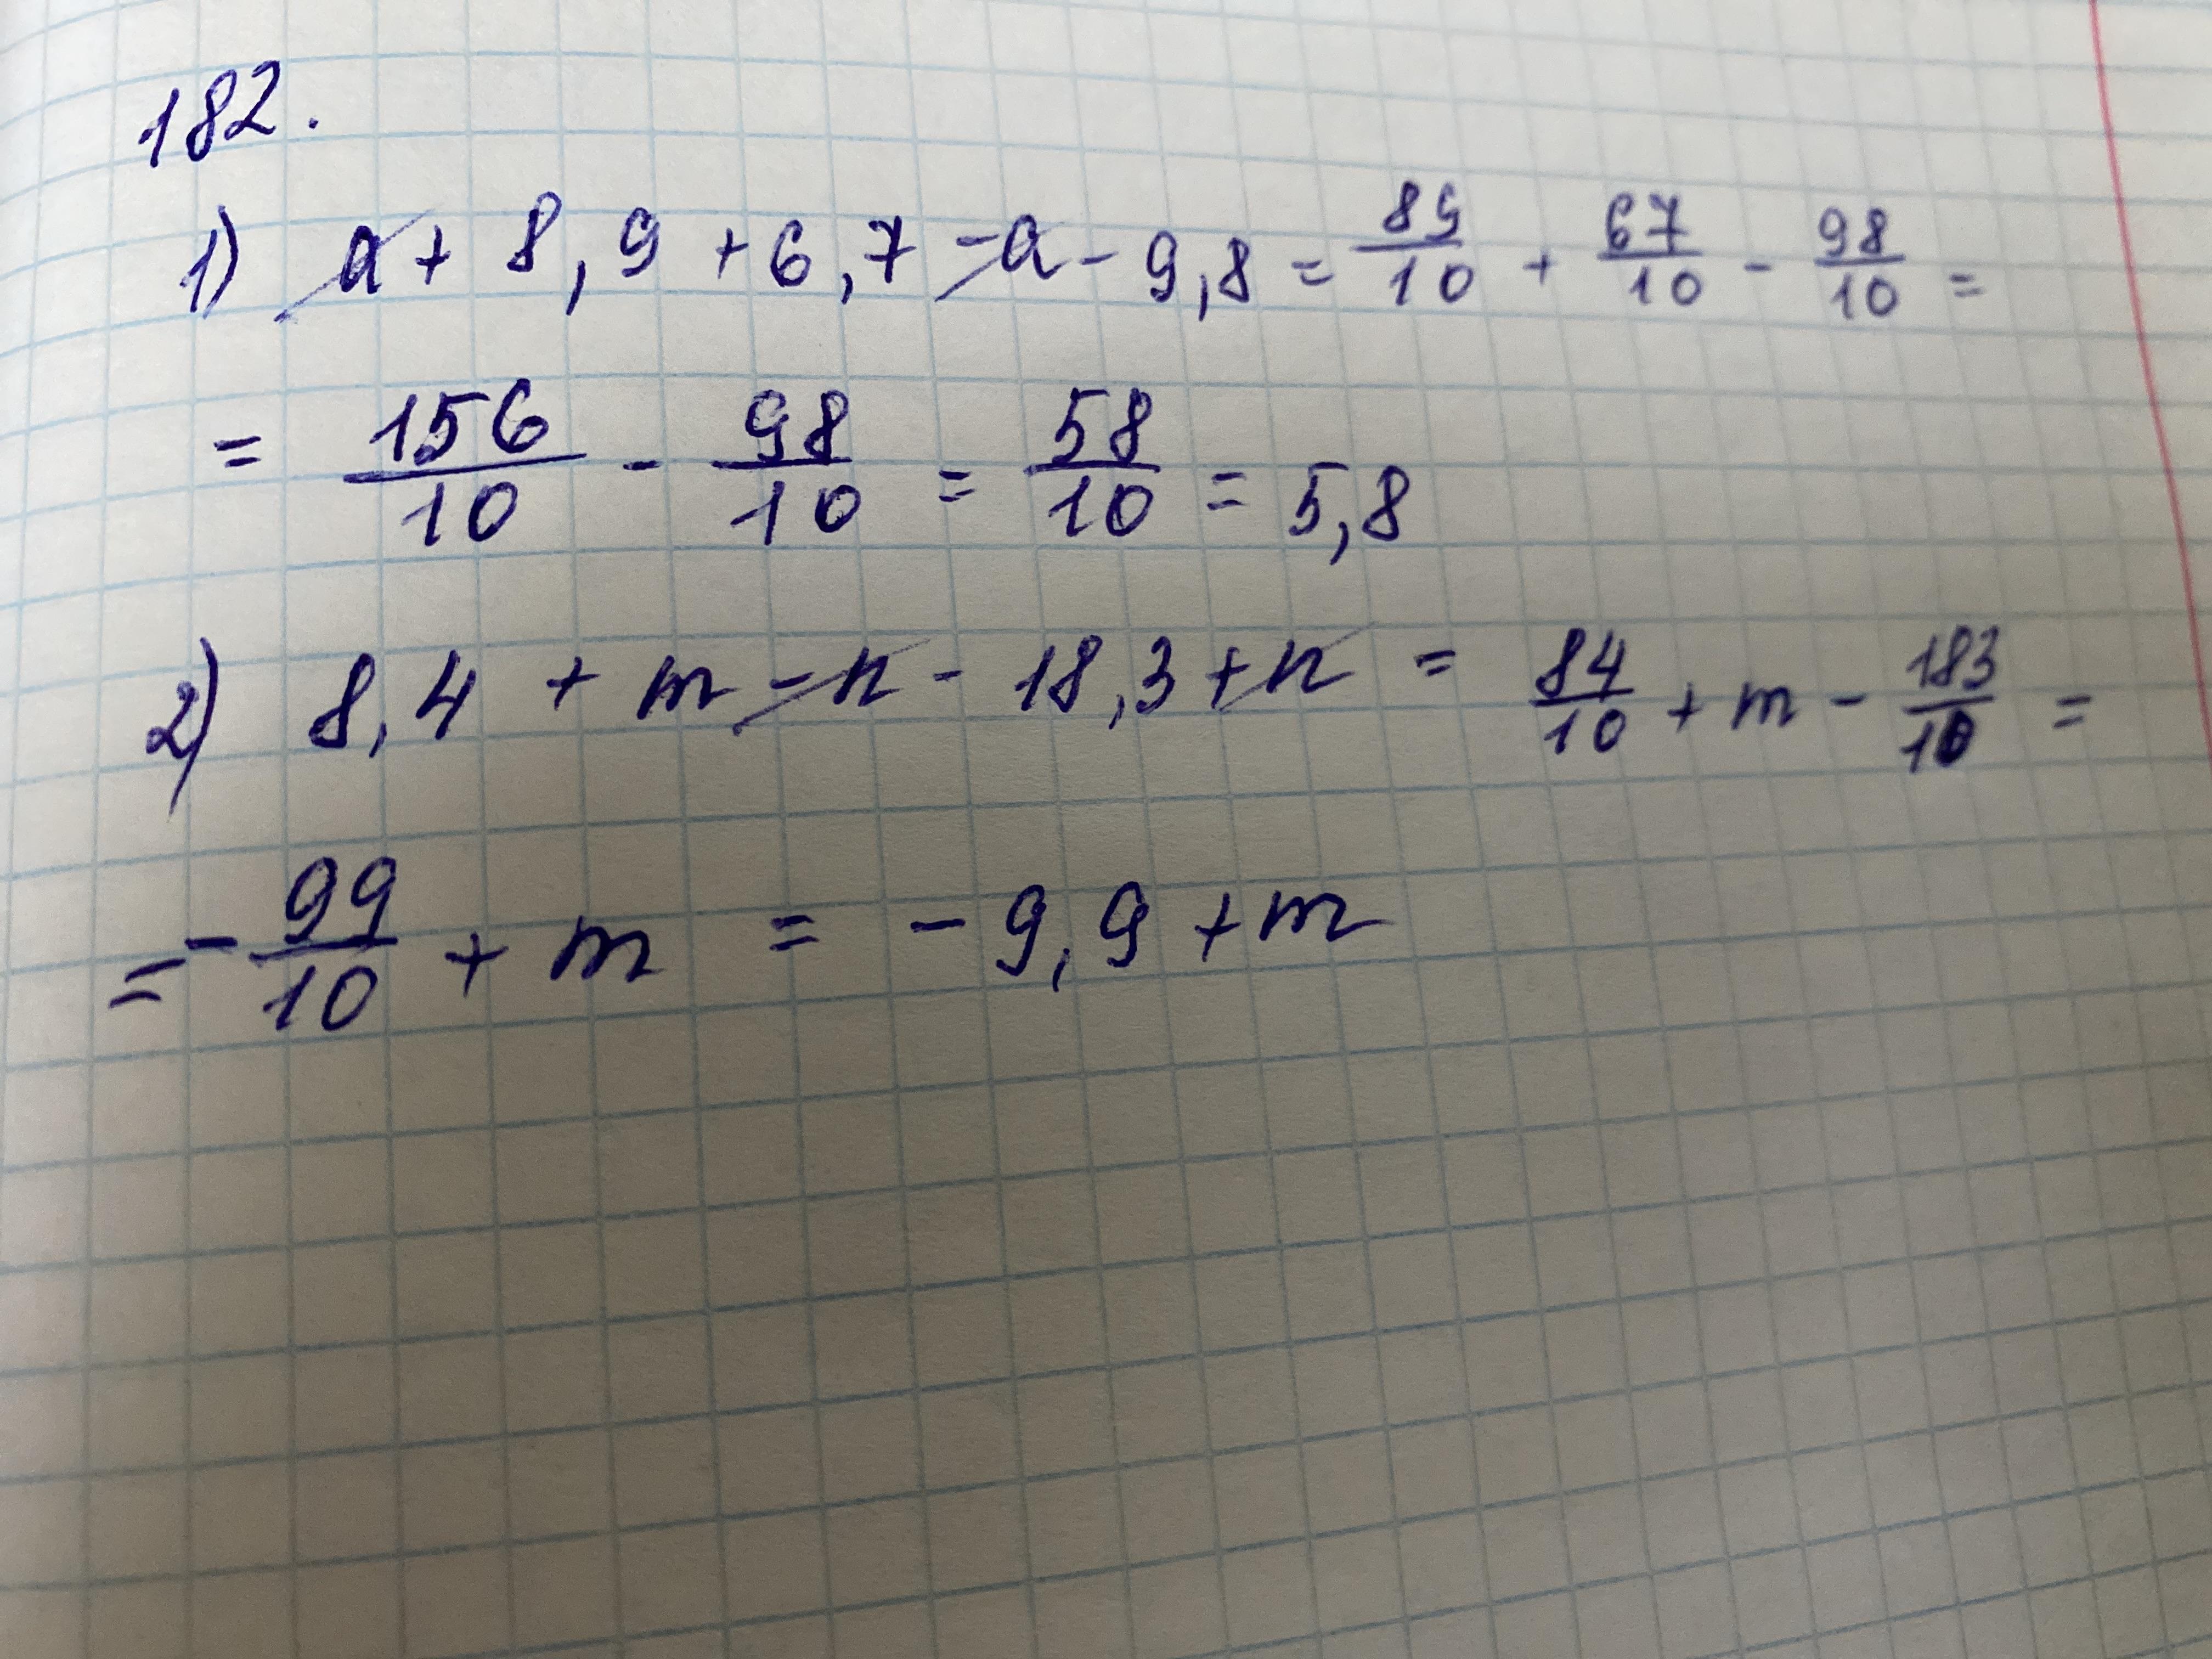 182.
1) a + 8,9 + 6,7 - a - 9,8 = 89/10 + 67/10 - 98/10 =
= 156/10 - 98/10 = 58/10 = 5,8
2) 8,4 + m - n - 18,3 + n = 84/10 + m - 183/10 =
= - 99/10 + m = - 9,9 + m